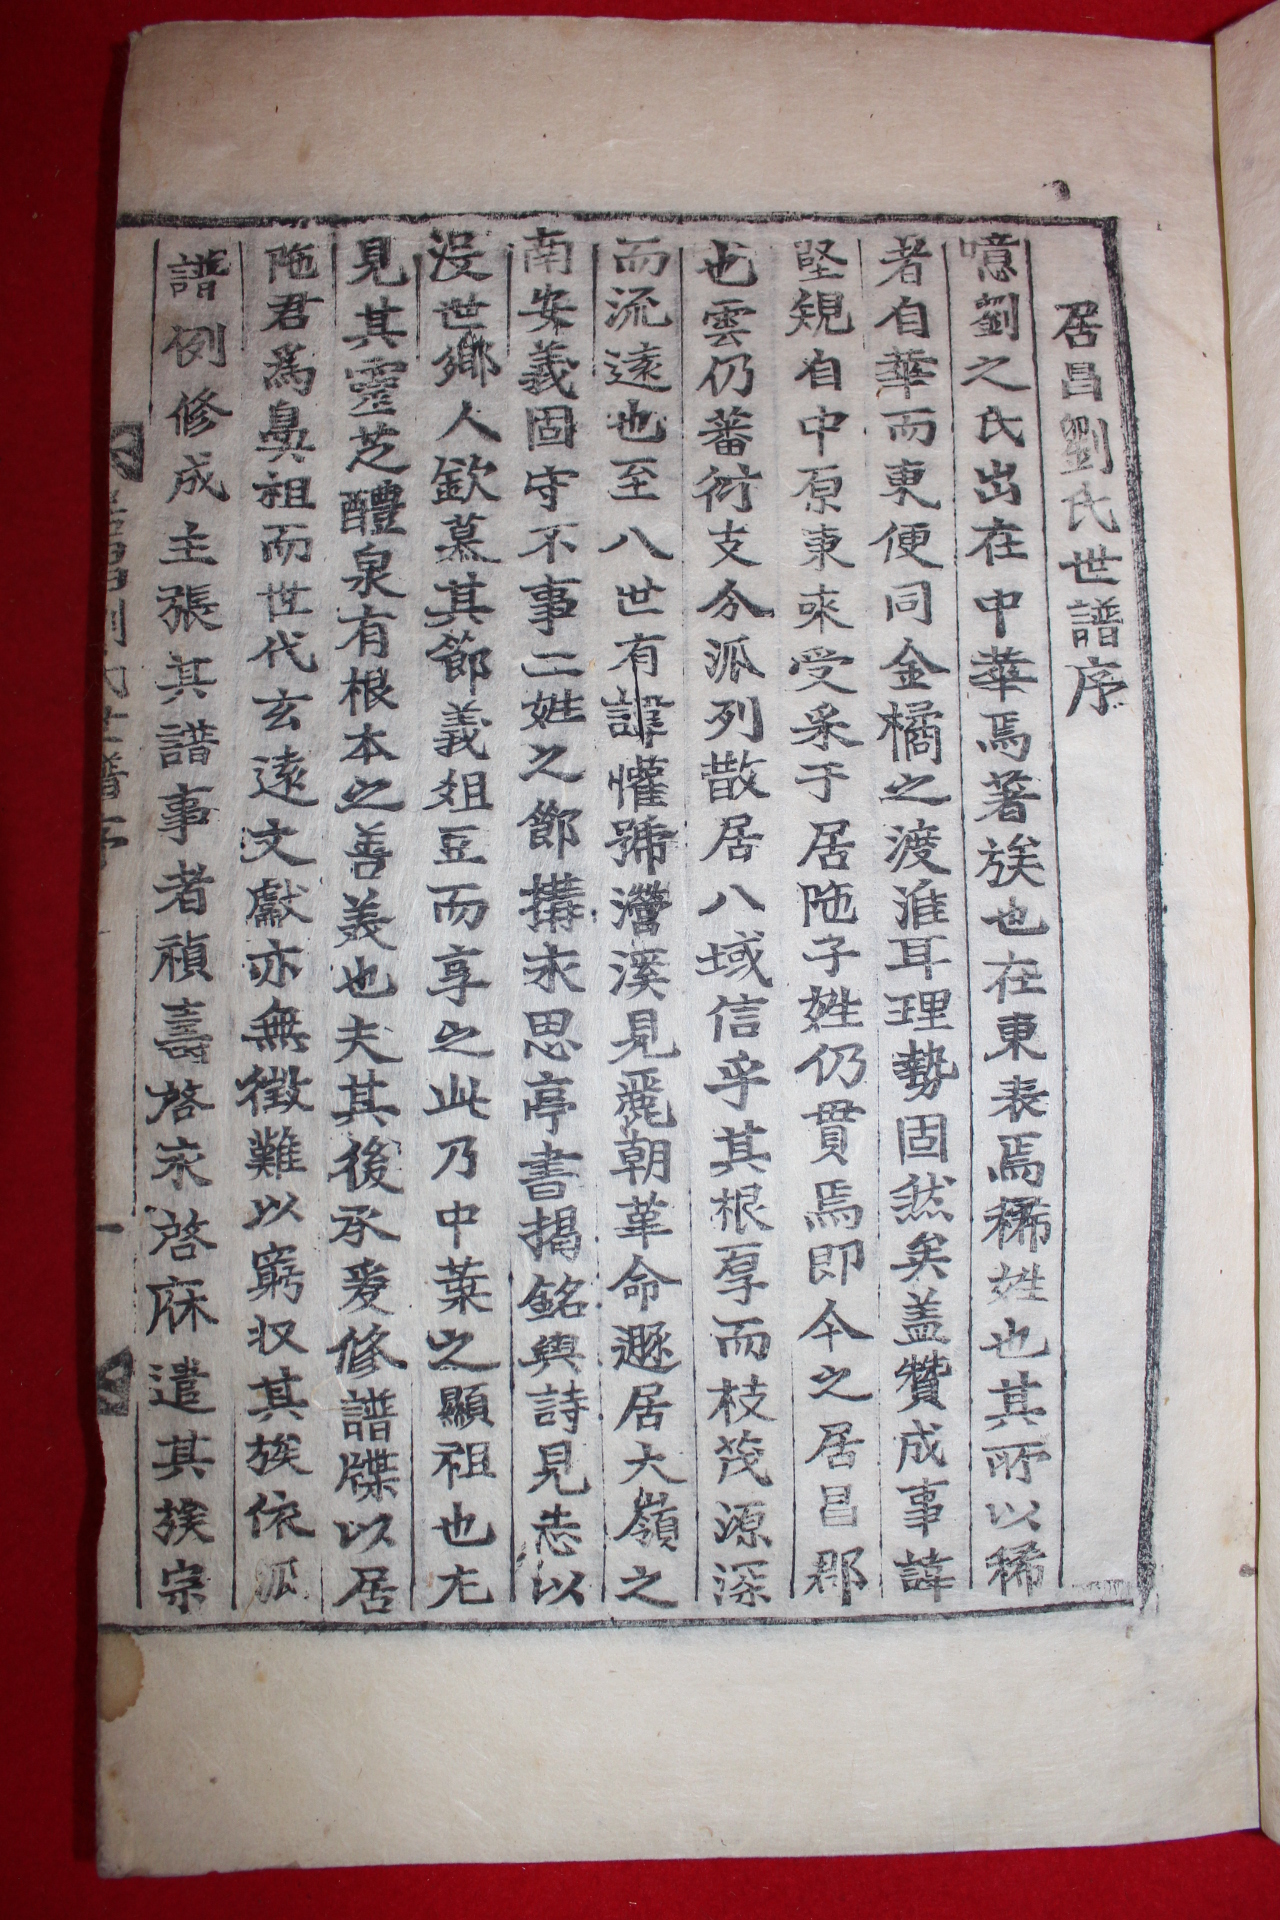 居昌劉氏世譜序
噫劉之氏出在中華焉著族也在東表焉稀姓也其所以稀
者自華而東便同金橘之渡淮耳理勢固然矣盖贊成事諱
堅規自中原東來受采于居陁子姓仍貫焉即今之居昌郡
也雲仍蕃衍支分派列散居八域信乎其根厚而枝茂源深
而流遠也至八世有諱懽號濳溪見麗朝革命遯居大嶺之
南安義固守不事二姓之節搆永思亭書揭銘與詩見志以
沒世鄉人欽慕其節義俎豆而享之此乃中葉之顯祖也尤
見其靈芝醴泉有根本之善美也夫其後承爰修譜牒以居
陁君爲鼻祖而世代玄遠文獻亦無徵難以窮収其族依派
譜例修成主張其譜事者禎壽啓永啓庥遣其族宗
居昌劉氏世譜序
一